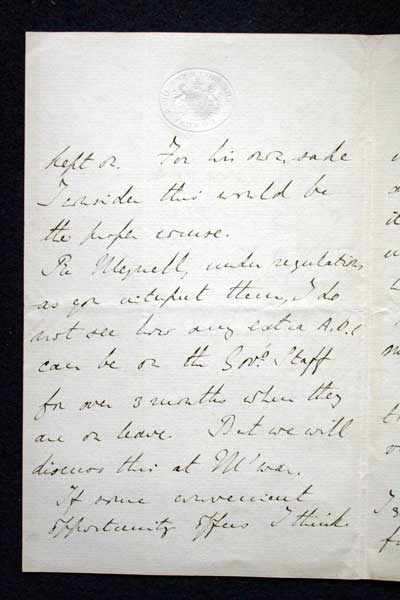 kept on. For his own sake
I consider this would be
the proper course.
Re Meynell, under regulations
as you interpret them, I do
not see how any extra A.D.C
can be on the Gov's Staff
for over 3 months when they
are on leave. But we will
discuss this at M'war.
If some convenient
opportunity offers I think